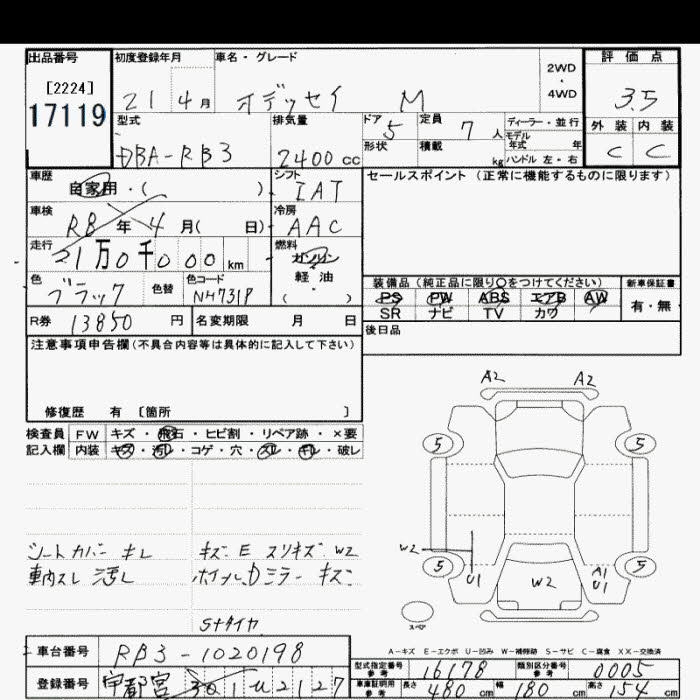 出品番号
[2224]
17119
初度登録年月
21 4月
車名・グレード
オデッセイ M
2WD
・
4WD
評価点
3.5
型式
DBA-RB3
排気量
2400 cc
ドア 5 定員 7 人
形状 積載 kg
ディーラー・並行
モデル年式 年
ハンドル 左・右
外装 内装
C C
車歴
自家用・( )
シフト
IAT
セールスポイント (正常に機能するものに限ります)
車検
R8年 4月( 日)
冷房
AAC
走行
21万0千000 km
燃料
ガソリン
軽油
( )
色
ブラック
色替
色コード
NH731P
装備品 (純正品に限り○をつけてください)
PS PW ABS エアB AW
SR ナビ TV カワ
新車保証書
有・無
R券 13850 円 名変期限 月 日
後日品
注意事項申告欄(不具合内容等は具体的に記入して下さい)
修復歴 有 [箇所 ]
検査員記入欄
FW キズ・飛石・ヒビ割・リペア跡・×要
内装 キズ・汚レ・コゲ・穴・スレ・キレ・破レ
シートカバー キレ
車内スレ 汚レ
キズ E スリキズ W2
ホイール、Dミラー キズ
Sタイヤ
A2 A2
5 5
W2
5 5
U1 W2 A1
U1
スペア
A-キズ E-エクボ U-凹み W-補修跡 S-サビ C-腐食 XX-交換済
車台番号 RB3-1020198
登録番号 宇都宮 301 む 2127
型式指定番号 参考 16178 類別区分番号 参考 0005
車庫証明用 参考 長さ 480 cm 幅 180 cm 高さ 154 cm